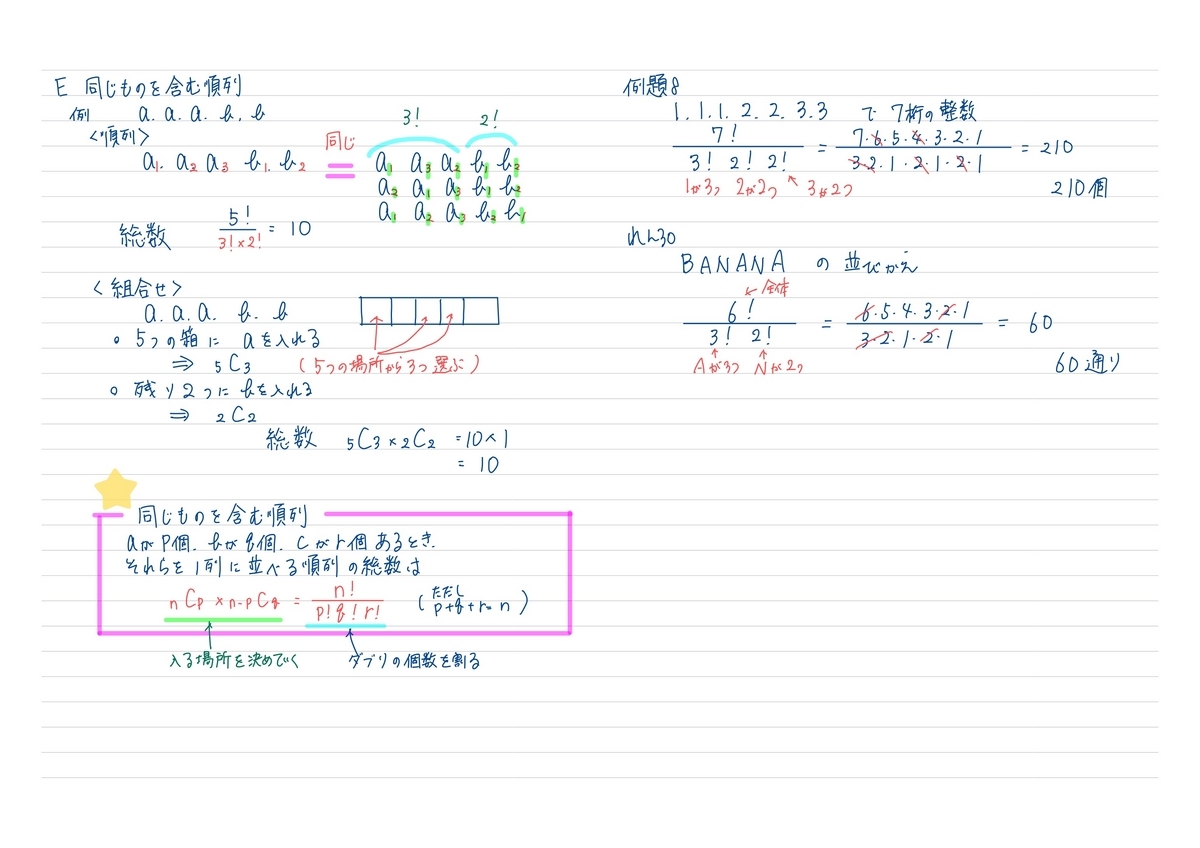 E 同じものを含む順列
例 a. a. a. b. b
<順列>
a₁. a₂ a₃ b₁. b₂
同じ
3! 2!
a₁ a₃ a₂ b₁ b₂
a₂ a₁ a₃ b₁ b₂
a₁ a₂ a₃ b₂ b₁
総数 5!/(3!×2!) = 10
<組合せ>
a. a. a. b. b
○ 5つの箱に aを入れる
⇒ ₅C₃ (5つの場所から3つ選ぶ)
○ 残り2つに bを入れる
⇒ ₂C₂
総数 ₅C₃ × ₂C₂ = 10 × 1
= 10
同じものを含む順列
aがP個. bがq個. Cがr個 あるとき.
それらを1列に並べる順列の総数は
nCp × n-pCq = n!/(p! q! r!) (ただし p+q+r=n)
入る場所を決めていく
ダブりの個数を割る
例題8
1. 1. 1. 2. 2. 3. 3 で 7桁の整数
7!/(3! 2! 2!) = 7·6·5·4·3·2·1/(3·2·1·2·1·2·1) = 210
1が3つ 2が2つ 3が2つ
210個
れん30
BANANA の 並びかえ
←全体
6!/(3! 2!) = 6·5·4·3·2·1/(3·2·1·2·1) = 60
Aが3つ Nが2つ
60通り